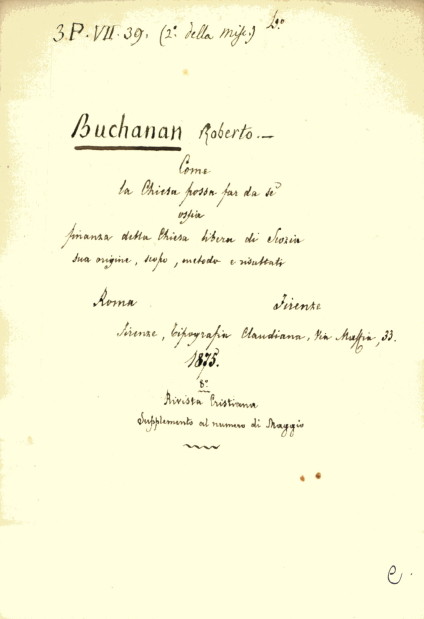 3.P.VII.39. (2º. della Misc.) L90
Buchanan Roberto.—
Come
la Chiesa possa far da sè
ossia
finanza della Chiesa libera di Scozia
sua origine, scopo, metodo e risultati
Roma Firenze
Firenze, Tipografia Claudiana, Via Maffia, 33.
1875.
8º
Rivista Cristiana
Supplemento al numero di Maggio
e.